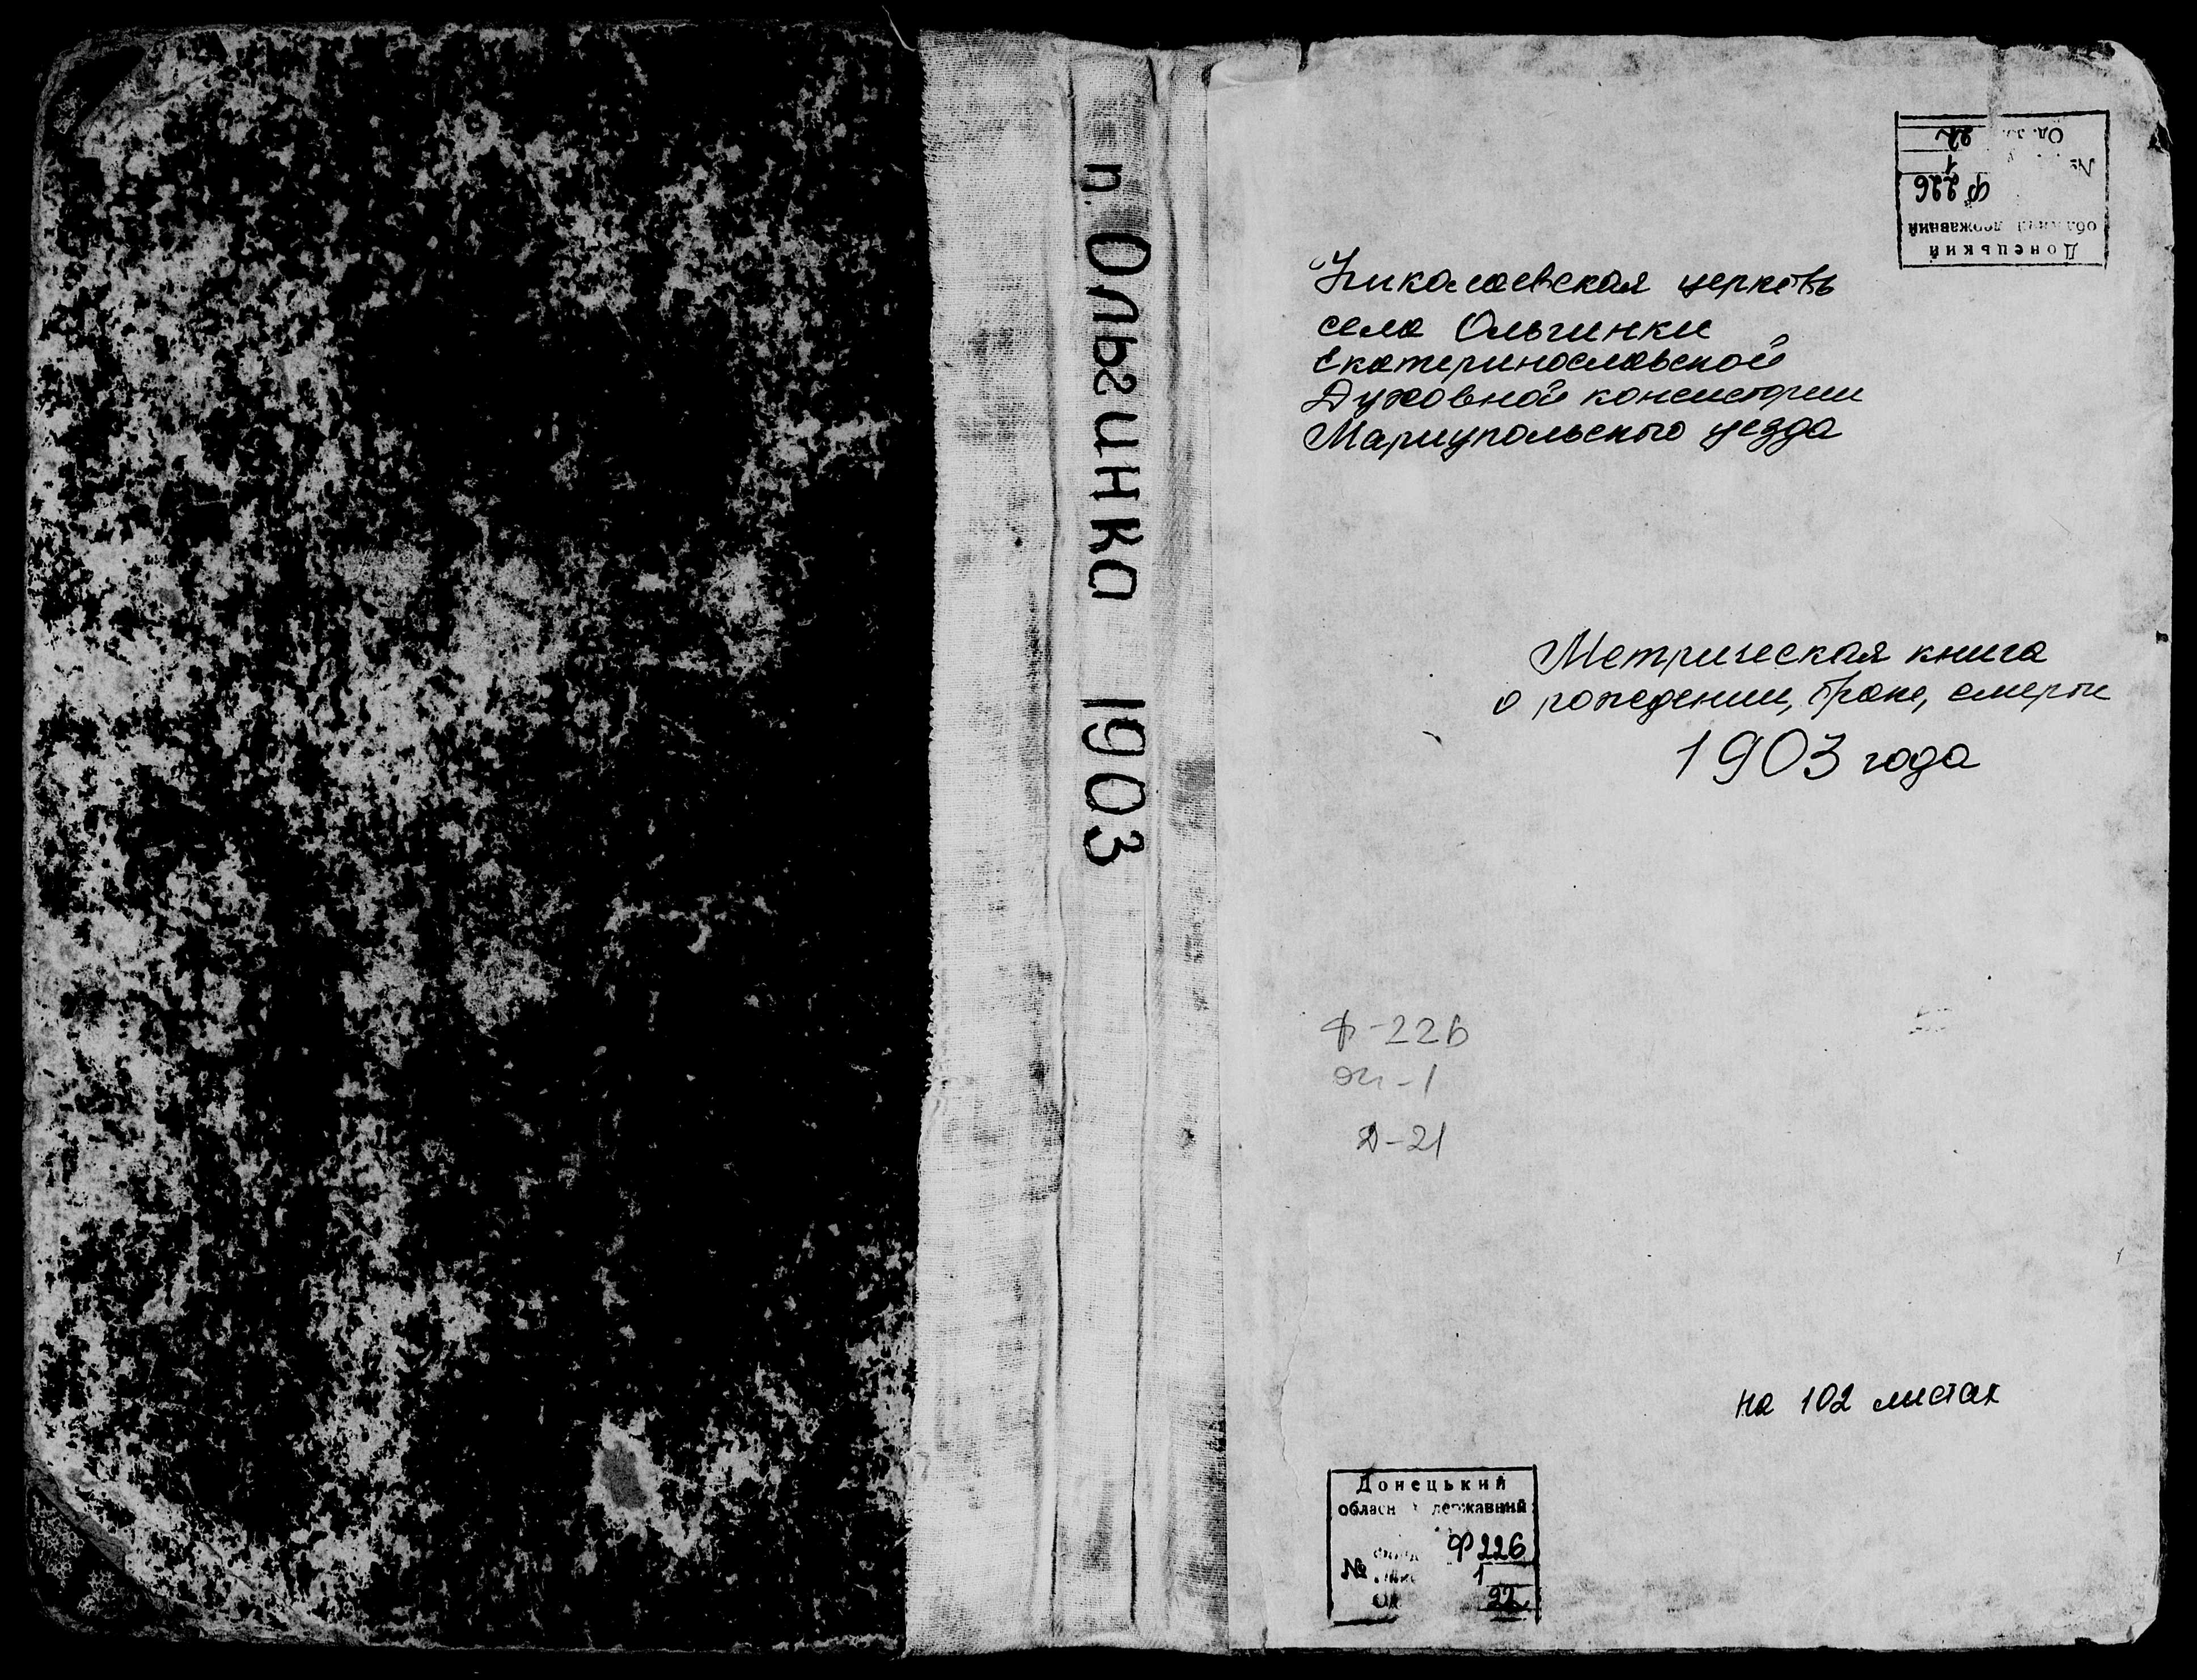 п. Ольгинка 1903
Донецький
обласний державний
Ф 226
№ 1
Од. 22
Николаевская церковь
села Ольгинки
Екатеринославской
Духовной консистории
Мариупольского уезда
Метрическая книга
о рождении, браке, смерти
1903 года
Ф-226
оп-1
Д-21
на 102 листах
Донецький
обласн державний
Ф 226
№ 1
22